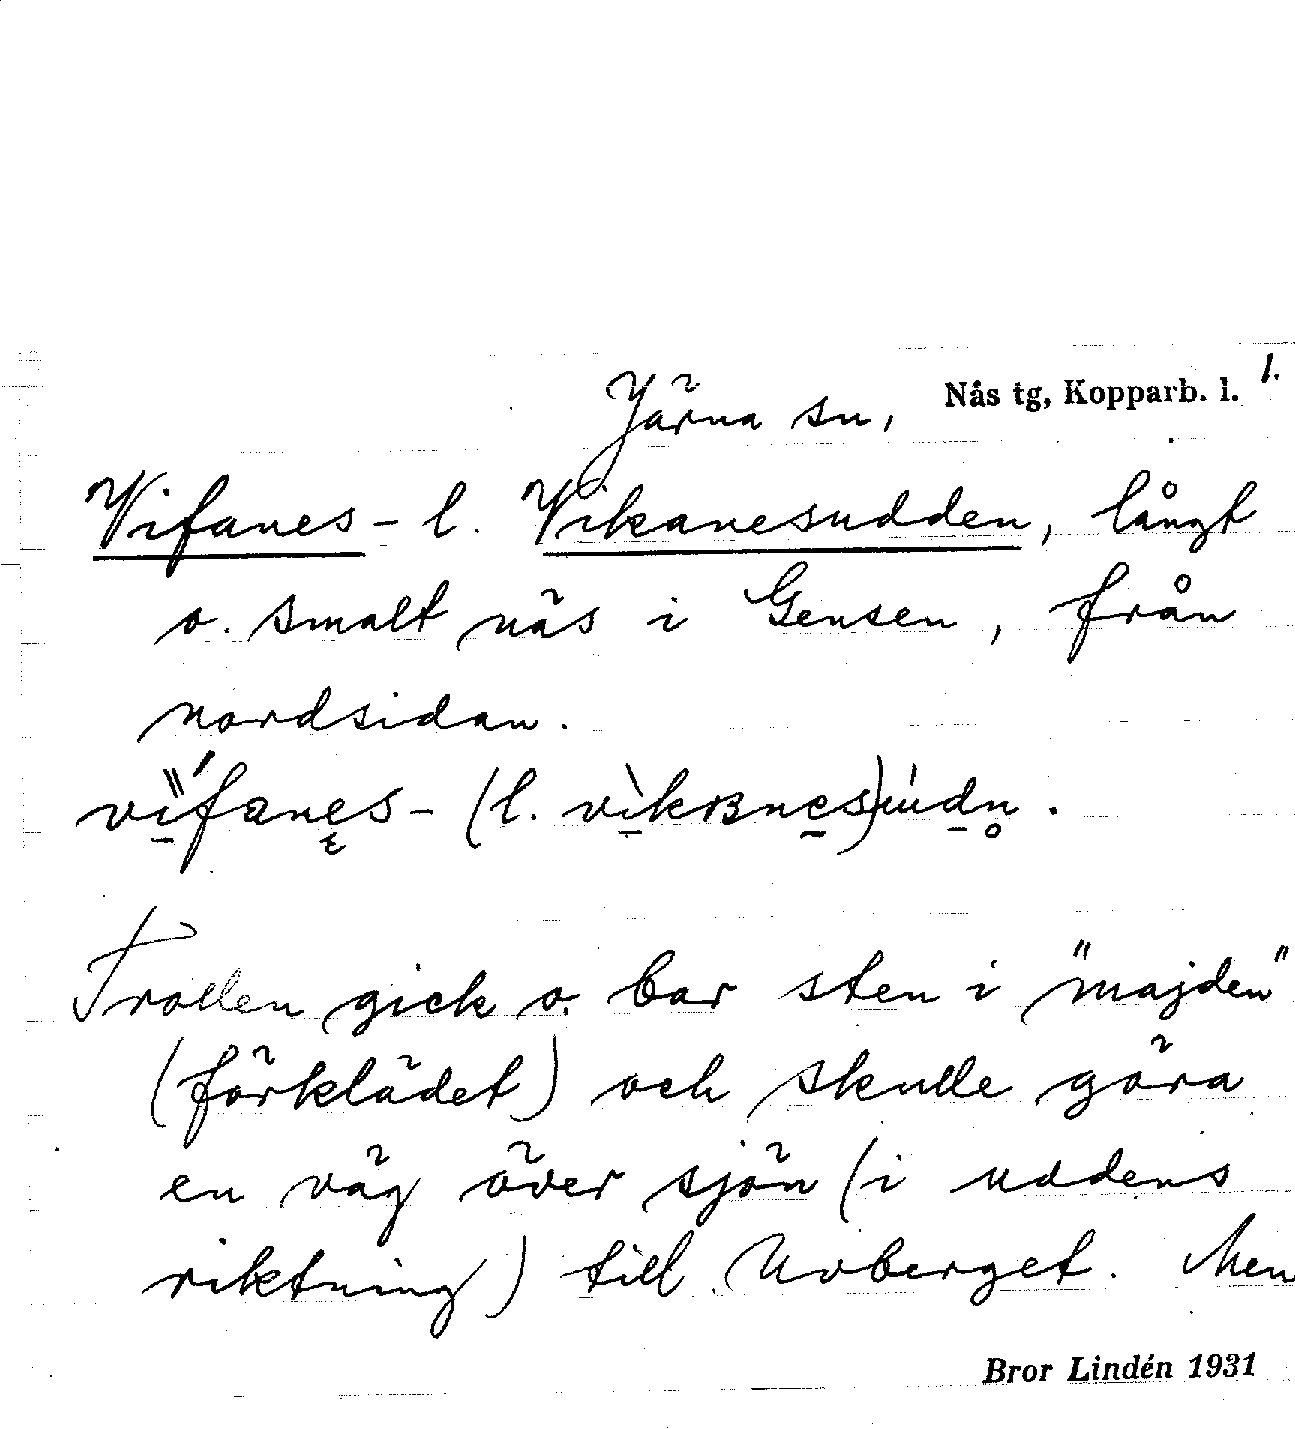 Järna sn, Nås tg, Kopparb. l. 1.
Vifanes- l. Vikanesudden, långt
o. smalt näs i Gensen, från
nordsidan.
vifanes- (l. vikɐnes)udn.
Trollen gick o. bar sten i "majden"
(förklädet) och skulle göra
en väg över sjön (i uddens
riktning) till Uvberget. Men
Bror Lindén 1931